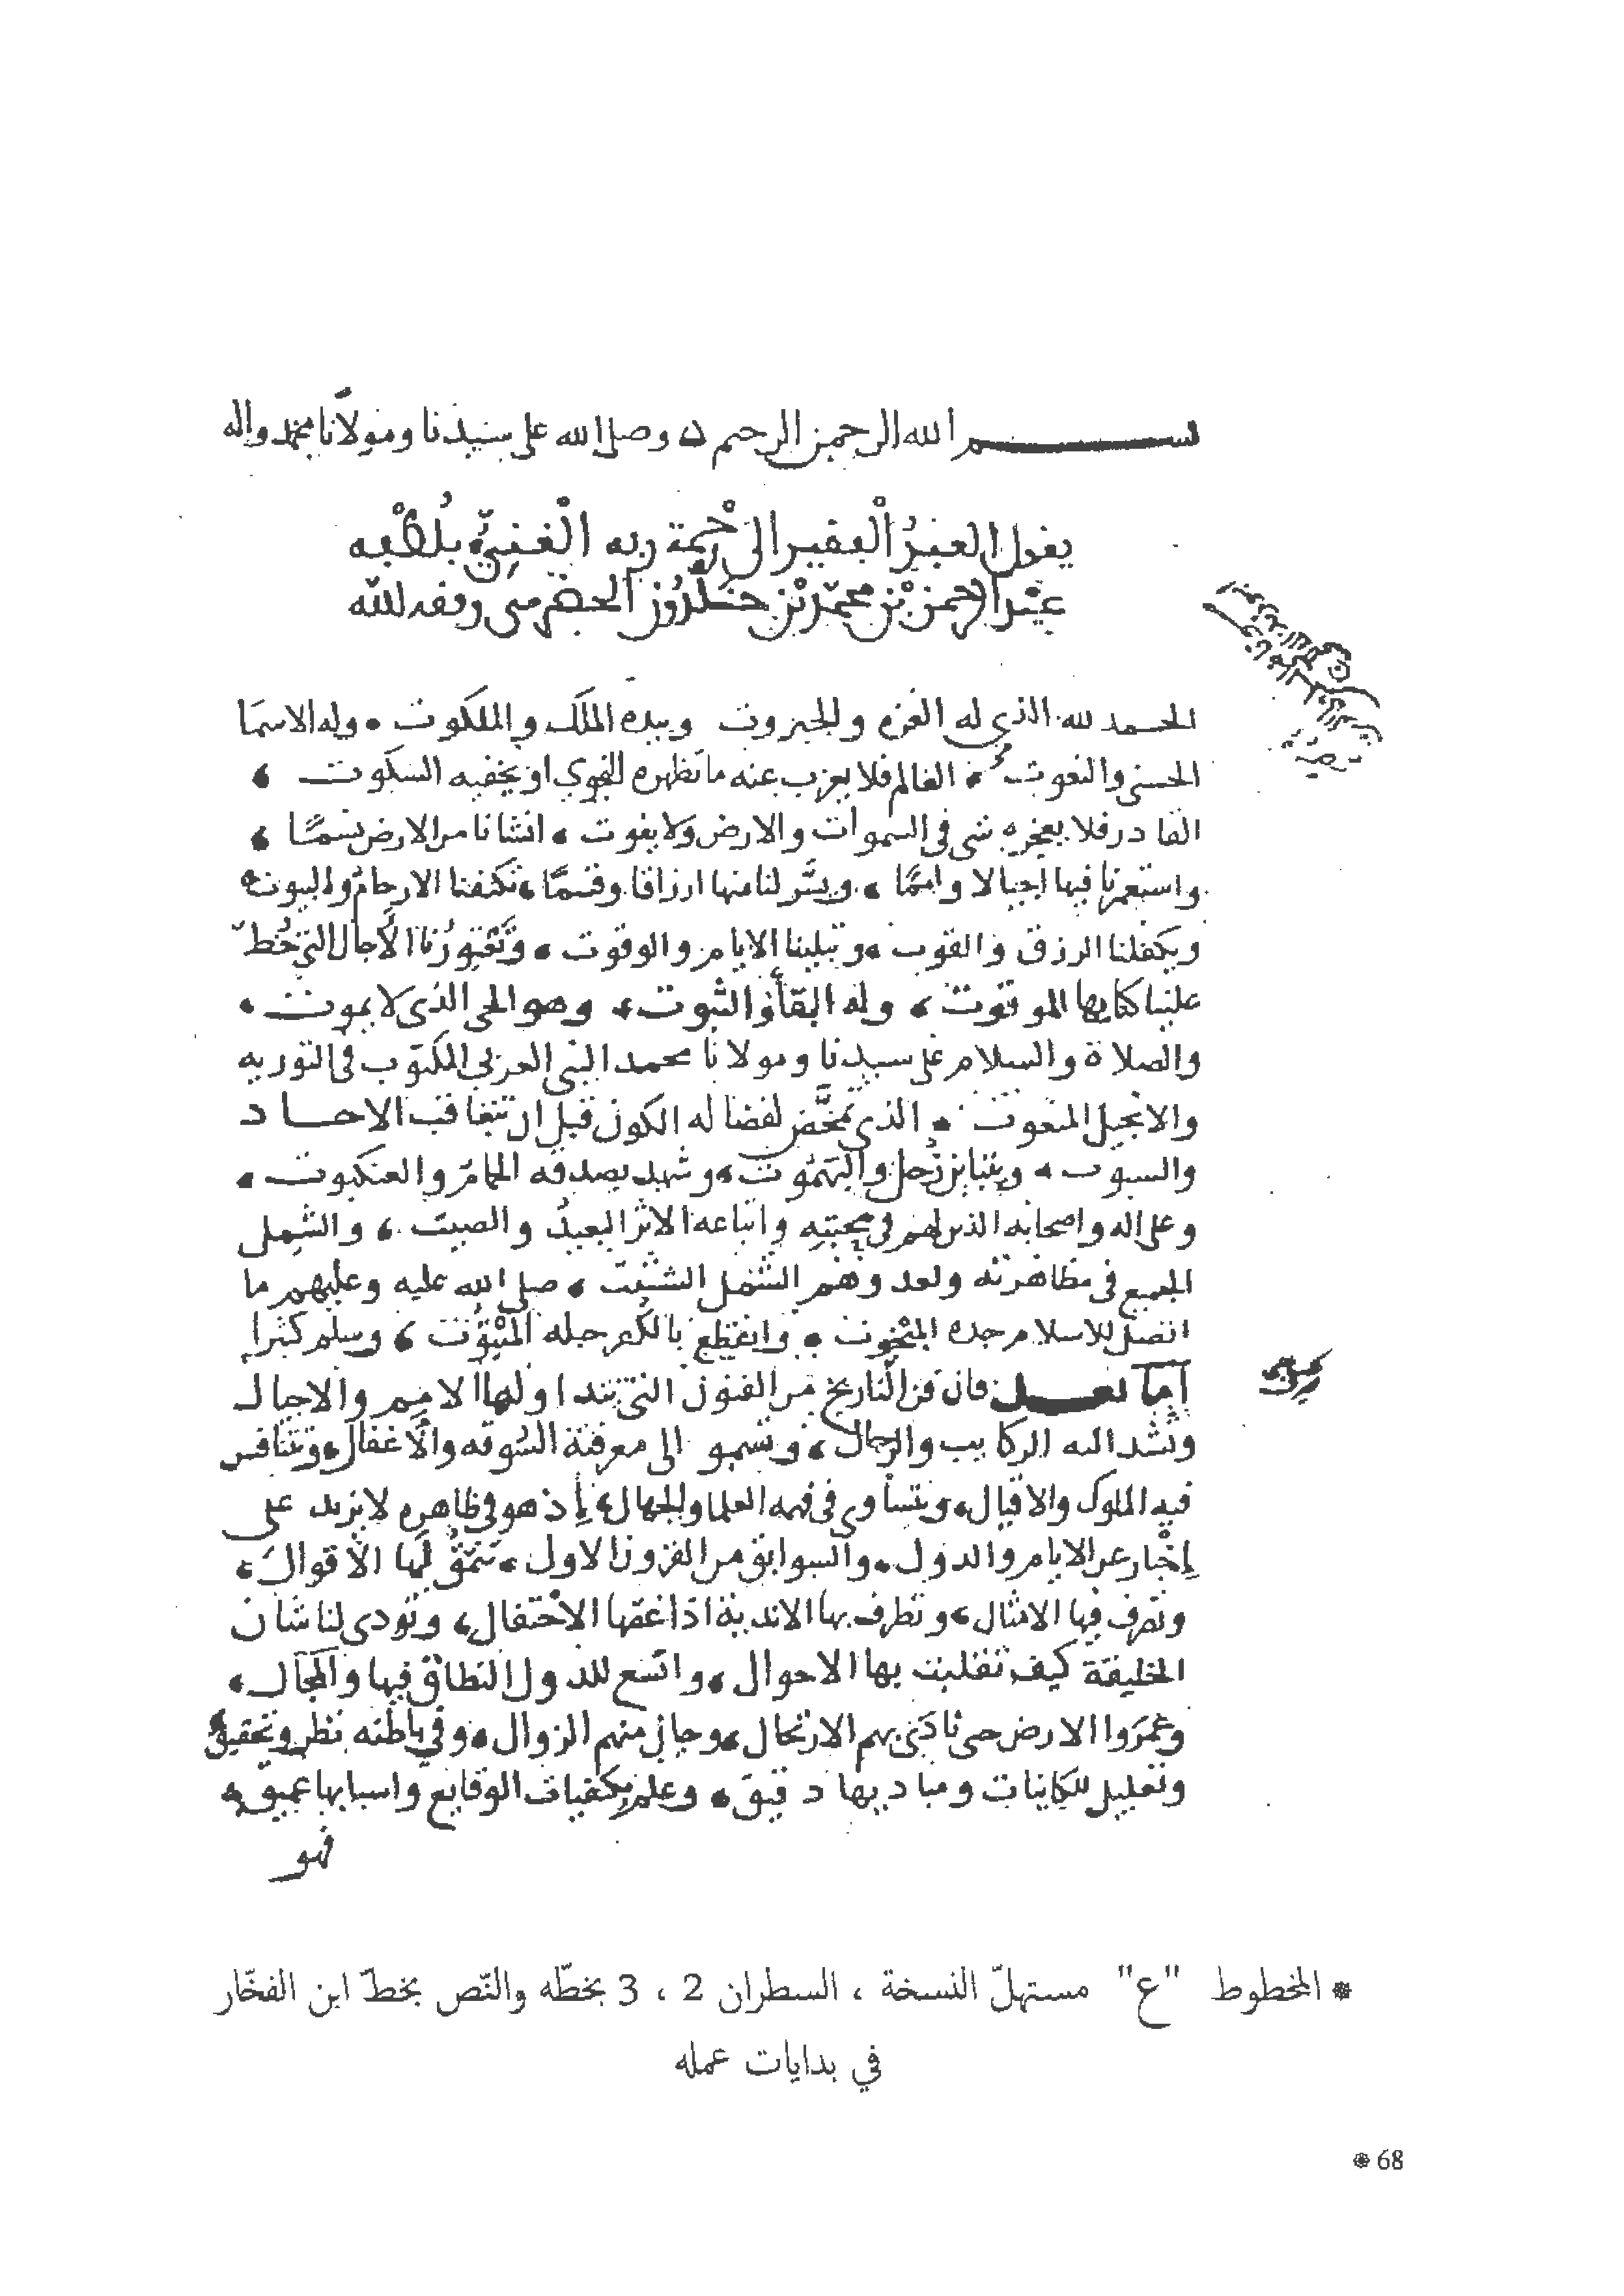 بســـــــم الله الرحمن الرحيم ں وصلى الله على سيدنا ومولانا محمد واله
يقول العبد الفقير الى رحمة ربه الغني بلطفه
عبد الرحمن بن محمد بن خلدون الحضرمي وفقه الله
الحمد لله الذي له العزه والجبروت وبيده الملك والملكوت ، وله الاسما
الحسنى والنعوت ، العالم فلا يعزب عنه ما تظهره النجوى او يخفيه السكوت ،
القادر فلا يعجزه شى فى السموات والارض ولا يفوت ، انشانا من الارض نسما ،
واستعمرنا فيها اجيالا وامما ، ويسر لنا منها ارزاقا وقسما ، تكنفنا الارحام والبيوت ،
ويكفلنا الرزق والقوت ، وتبلينا الايام والوقوت ، وتعتورنا الآجال التي خط
علينا كتابها الموقوت ، وله البقأ والثبوت ، وهو الحي الذي لا يموت ،
والصلاة والسلام على سيدنا ومولانا محمد النبى العربي المكتوب في التوريه
والانجيل المنعوت ، الذي تمخض لفضاله الكون قبل ان تتعاقب الاحـاد
والسبوت ، ويتباين زحل واليهموت ، وشهد بصدقه الحمام والعنكبوت ،
وعلى اله واصحابه الذين لهم في محبته واتباعه الاثر البعيد والصيت ، والشمل
الجميع في مظاهرته ولعدوهم الشمل الشتيت ، صلى الله عليه وعليهم ما
اتصل للاسلام جده المبخوت ، وانقطع بالكفر حبله المبتوت ، وسلم كثيرا
أما بعـــد فان فن التاريخ من الفنون التي تتداولها الامم والاجيال
وتشد اليه الركايب والرحال ، وتسمو الى معرفته السوقه والأغفال ، وتتنافس
فيه الملوك والاقيال ، ويتساوى في فهمه العلما والجهال ، إذ هو في ظاهره لا يزيد على
إخبار عن الايام والدول ، والسوابق من القرون الاول ، تنمق لها الاقوال ،
وتصرف فيها الامثال ، وتطرف بها الاندية اذا غصها الاحتفال ، وتودى لنا شان
الخليقة كيف تقلبت بها الاحوال ، واتسع للدول النطاق فيها والمجال ،
وعمروا الارض حتى نادى بهم الارتحال ، وحان منهم الزوال ، وفي باطنه نظر وتحقيق
وتعليل للكاينات ومباديها دقيق ، وعلم بكيفيات الوقايع واسبابها عميق ،
فهو
* المخطوط "ع" مستهلّ النسخة ، السطران 2 ، 3 بخطّه والنّص بخطّ ابن الفخّار
في بدايات عمله
* 68